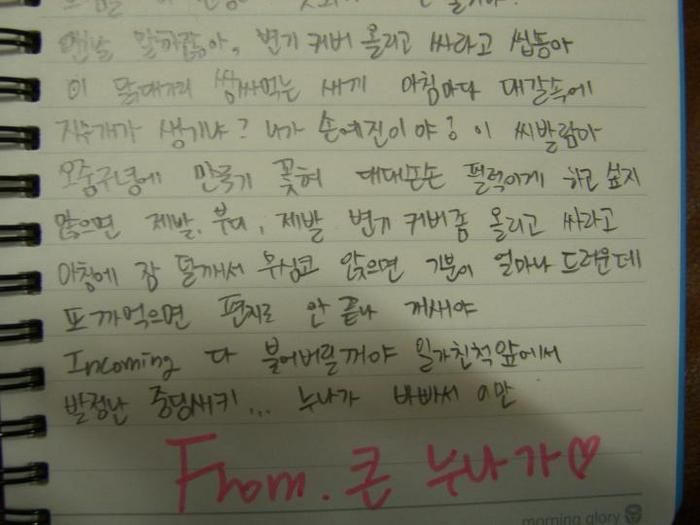 맨날 말하잖아, 변기 커버 올리고 싸라고 씹동아
이 닭대가리 쌈싸먹는 새끼 아침마다 대갈속에
지우개가 생기냐? 내가 손예진이야? 이 씨발람아
오줌구녕에 만국기 꽂혀 대대손손 펄럭이게 하고 싶지
않으면 제발, 부디, 제발 변기 커버좀 올리고 싸라고
아침에 잠 덜깨서 무심코 앉으면 기분이 얼마나 드러운데
또 까먹으면 편지로 안 끝나 개새야
Incoming 다 불어버릴꺼야 일가친척앞에서
발정난 중딩새키... 누나가 바빠서 이만
From. 큰 누나가♡
morning glory